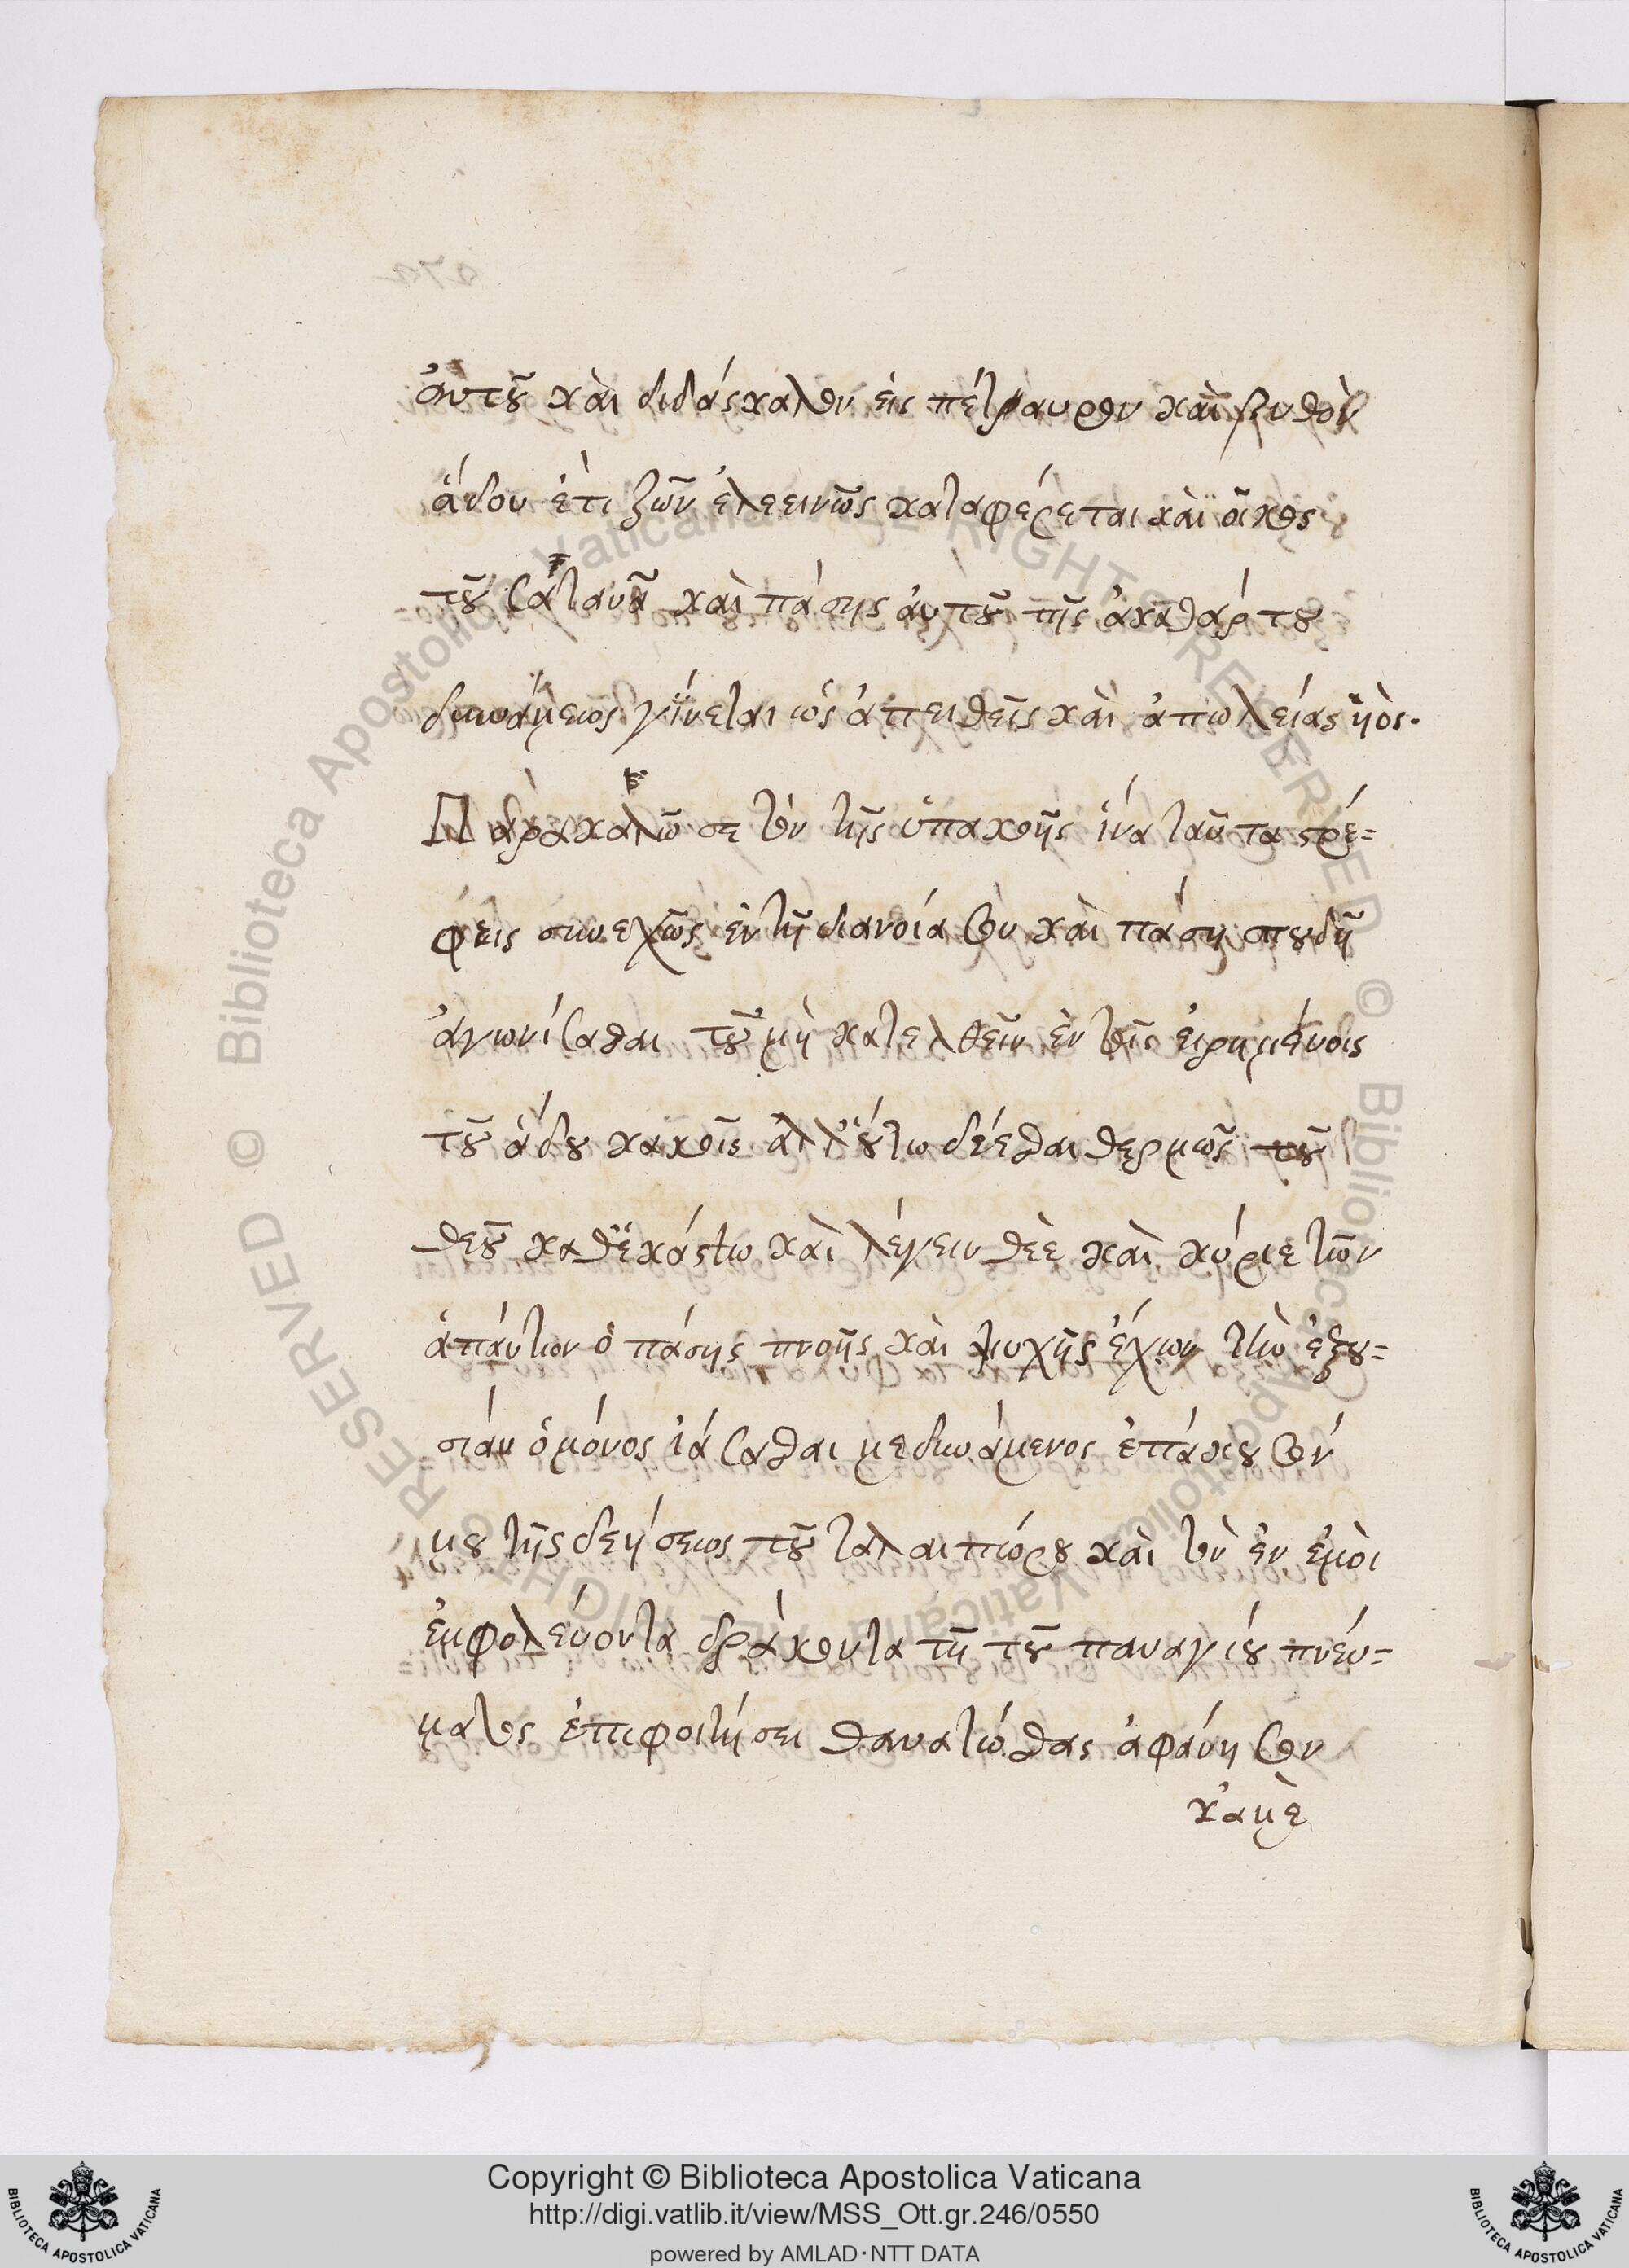 αὐτοῦ καὶ διδάσκαλον εἰς πέταυρον καὶ βυθὸν
ἅδου ἔτι ζῶν ἐλεεινῶς καταφέρεται καὶ οἶκος
τοῦ Σατανᾶ καὶ πάσης αὐτοῦ τῆς ἀκαθάρτου
δυνάμεως γίνεται ὡς ἀπειθεῖς καὶ ἀπωλείας ὑὸς.
Παρακαλῶ σε τὸν τῆς ὑπακοῆς ἵνα ταῦτα στρέ=
φεις συνεχῶς ἐν τῇ διανοία σου καὶ πάση σπουδῇ
ἀγωνίσασθαι τοῦ μὴ κατελθεῖν ἐν τοῖς εἰρημένοις
τοῦ ἅδου κακοῖς ἀλλ' οὕτω δέεσθαι θερμῶς
θεοῦ καθ' ἑκάστω καὶ λέγειν θεὲ καὶ κύριε τῶν
ἁπάντων ὁ πάσης πνοῆς καὶ ψυχῆς ἔχων τὴν ἐξου=
σίαν ὁ μόνος ἰάσασθαι με δυνάμενος ἐπάκουσόν
μου τῆς δεήσεως τοῦ ταλαιπώρου καὶ τὸν ἐν ἐμοὶ
ἐμφολεύοντα δράκοντα τῇ τοῦ παναγίου πνεύ=
ματος ἐπιφοιτήσει θανατώσας ἀφάνησον
κἀμὲ
Copyright © Biblioteca Apostolica Vaticana
http://digi.vatlib.it/view/MSS_Ott.gr.246/0550
powered by AMLAD·NTT DATA
BIBLIOTECA APOSTOLICA VATICANA
BIBLIOTECA APOSTOLICA VATICANA
© Biblioteca Apostolica Vaticana ALL RIGHTS RESERVED © Biblioteca Apostolica Vaticana ALL RIGHTS RESERVED